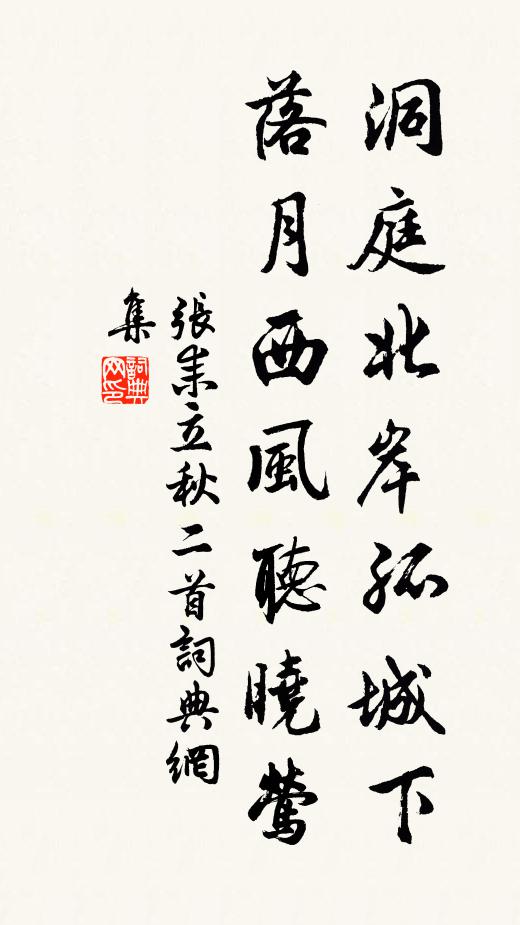 洞庭北岸孤城下
落月西風聽曉鶯
張耒立秋二首詞典網
集
詞典网印